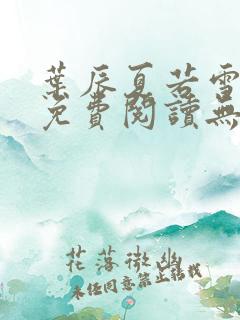 葉辰夏若雪
免費閱讀無
花落微幽
未经同意禁止转载